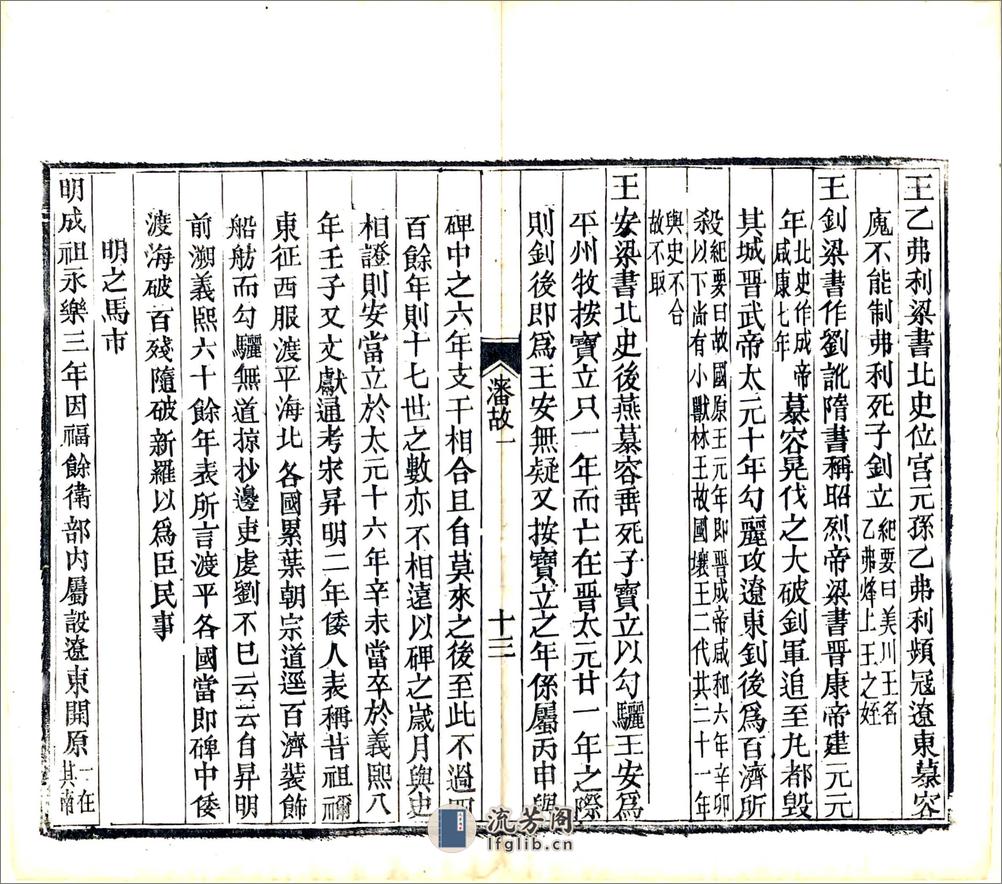 王乙弗利梁書北史位宮元孫乙弗利頻冦遼東慕容
廆不能制弗利死子釗立紀要曰美川王名
乙弗烽上王之姪
王釗梁書作劉訛隋書稱昭烈帝梁書晉康帝建元元
年北史作成帝
咸康七年慕容晃伐之大破釗軍追至九都毀
其城晉武帝太元十年勾麗攻遼東釗後爲百濟所
殺紀要曰故國原王元年即晉成帝咸和六年辛卯
以下尚有小獸林王故國壤王二代共二十一年
與史不合
故不取
王安梁書北史後燕慕容垂死子寶立以勾驪王安爲
平州牧按寶立只一年而亡在晉太元廿一年之際
則釗後即爲王安無疑又按寶立之年係屬丙申與
碑中之六年支干相合且自莫來之後至此不過四
百餘年則十七世之數亦不相遠以碑之歲月與史
相證則安當立於太元十六年辛未當卒於義熙八
年壬子又文獻通考宋昇明二年倭人表稱昔祖禰
東征西服渡平海北各國累葉朝宗道逕百濟裝飾
船舫而勾驪無道掠抄邊吏虔劉不巳云云自昇明
前溯義熙六十餘年表所言渡平各國當即碑中倭
渡海破百殘隨破新羅以爲臣民事
明之馬市
明成祖永樂三年因福餘衛部內屬設遼東開原一在
其南
瀋故一
十三
流芳阁
lfglib.cn